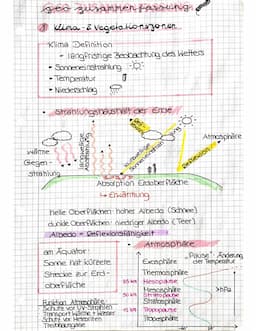 Geo Zusammenfassung
① Klima- & Vegetationszonen
Klima Definition
→ langfristige Beobachtung des Wetters
• Sonneneinstrahlung
• Temperatur
• Niederschlag
• Strahlungshaushalt der Erde
Atmosphäre
Wärme
Gegen-
strahlung
langwellige
kurzwellige
Sonnenstrahlen
Reflexion
Absorption Erdoberfläche
↳ Erwärmung
helle Oberflächen: hoher Albedo (Schnee)
dunkle Oberflächen: niedriger Albedo (Teer)
Albedo = Reflexionsfähigkeit
am Äquator:
Sonne hat kürzere
Strecke zur Erd-
oberfläche
• Atmosphäre
"Pause" = Änderung
der Temperatur
Exosphäre
Thermosphäre
85 km Mesopause
Mesosphäre
50 km Stratopause
Stratosphäre
15 km Tropopause
Troposphäre
>hPa
Funktion Atmosphäre:
Schutz vor UV-Strahlen
Transport Wärme + Wasser
Schutz vor Meteoriten
Treibhausgase